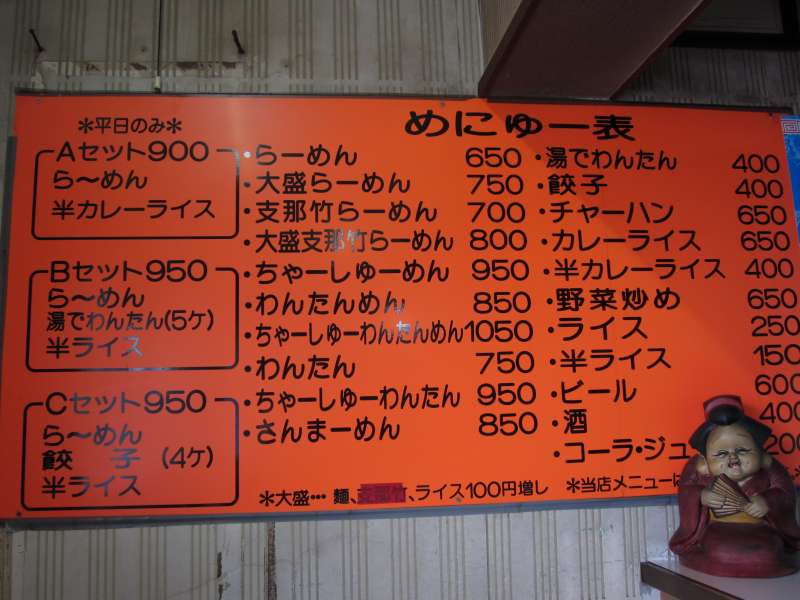 めにゅー表
＊平日のみ＊
Aセット900
ら〜めん
半カレーライス
Bセット950
ら〜めん
湯でわんたん(5ケ)
半ライス
Cセット950
ら〜めん
餃子 (4ケ)
半ライス
・らーめん 650
・大盛らーめん 750
・支那竹らーめん 700
・大盛支那竹らーめん 800
・ちゃーしゅーめん 950
・わんたんめん 850
・ちゃーしゅーわんたんめん 1050
・わんたん 750
・ちゃーしゅーわんたん 950
・さんまーめん 850
・湯でわんたん 400
・餃子 400
・チャーハン 650
・カレーライス 650
・半カレーライス 400
・野菜炒め 650
・ライス 250
・半ライス 150
・ビール 600
・酒 400
・コーラ・ジュ 200
＊大盛… 麺、支那竹、ライス100円増し
＊当店メニューは